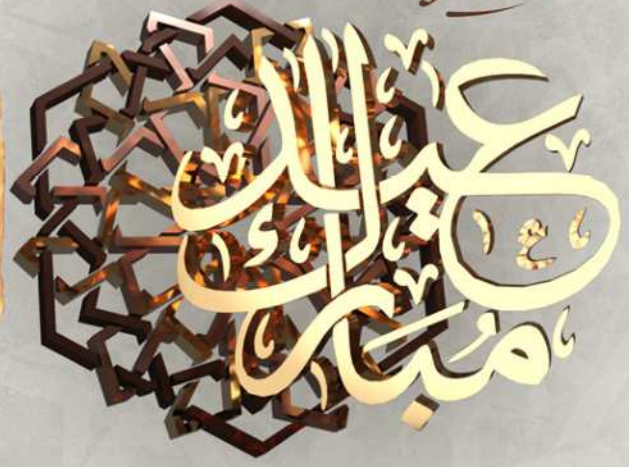 عيدك
مُبارك